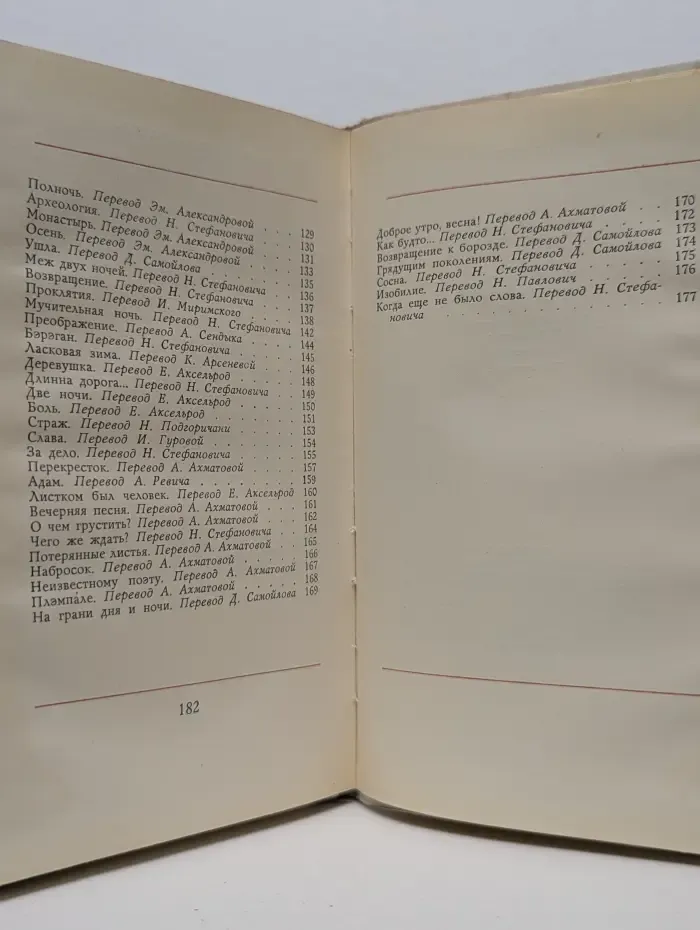 Полночь. Перевод Эм. Александровой . . . 129
Археология. Перевод Н. Стефановича . . . 130
Монастырь. Перевод Эм. Александровой . . 131
Осень. Перевод Эм. Александровой . . . . 133
Ушла. Перевод Д. Самойлова . . . . . . 135
Меж двух ночей. Перевод Н. Стефановича . . 136
Возвращение. Перевод Н. Стефановича . . . 137
Проклятия. Перевод И. Миримского . . . . 138
Мучительная ночь. Перевод Н. Стефановича 142
Преображение. Перевод А. Сендыка . . . . 144
Бэрэган. Перевод Н. Стефановича . . . . . 145
Ласковая зима. Перевод К. Арсеневой . . . 146
Деревушка. Перевод Е. Аксельрод . . . . . 148
Длинна дорога... Перевод Н. Стефановича . . 149
Две ночи. Перевод Е. Аксельрод . . . . . 150
Боль. Перевод Е. Аксельрод . . . . . . 151
Страж. Перевод Н. Подгоричани . . . . . 153
Слава. Перевод И. Гуровой . . . . . . 154
За дело. Перевод Н. Стефановича . . . . . 155
Перекресток. Перевод А. Ахматовой . . . . 157
Адам. Перевод А. Ревича . . . . . . . 159
Листком был человек. Перевод Е. Аксельрод 160
Вечерняя песня. Перевод А. Ахматовой . . . 161
О чем грустить? Перевод А. Ахматовой . . . 162
Чего же ждать? Перевод Н. Стефановича . . . 164
Потерянные листья. Перевод А. Ахматовой . . 165
Набросок. Перевод А. Ахматовой . . . . . 166
Неизвестному поэту. Перевод А. Ахматовой 167
Плэмпэле. Перевод А. Ахматовой . . . . . 168
На грани дня и ночи. Перевод Д. Самойлова 169
182
Доброе утро, весна! Перевод А. Ахматовой . . 170
Как будто... Перевод Н. Стефановича . . . . 172
Возвращение к борозде. Перевод Д. Самойлова 173
Грядущим поколениям. Перевод Д. Самойлова 174
Сосна. Перевод Н. Стефановича . . . . . 175
Изобилие. Перевод Н. Павлович . . . . . 176
Когда еще не было слова. Перевод Н. Стефа-
новича . . . . . . . . . . . . . 177